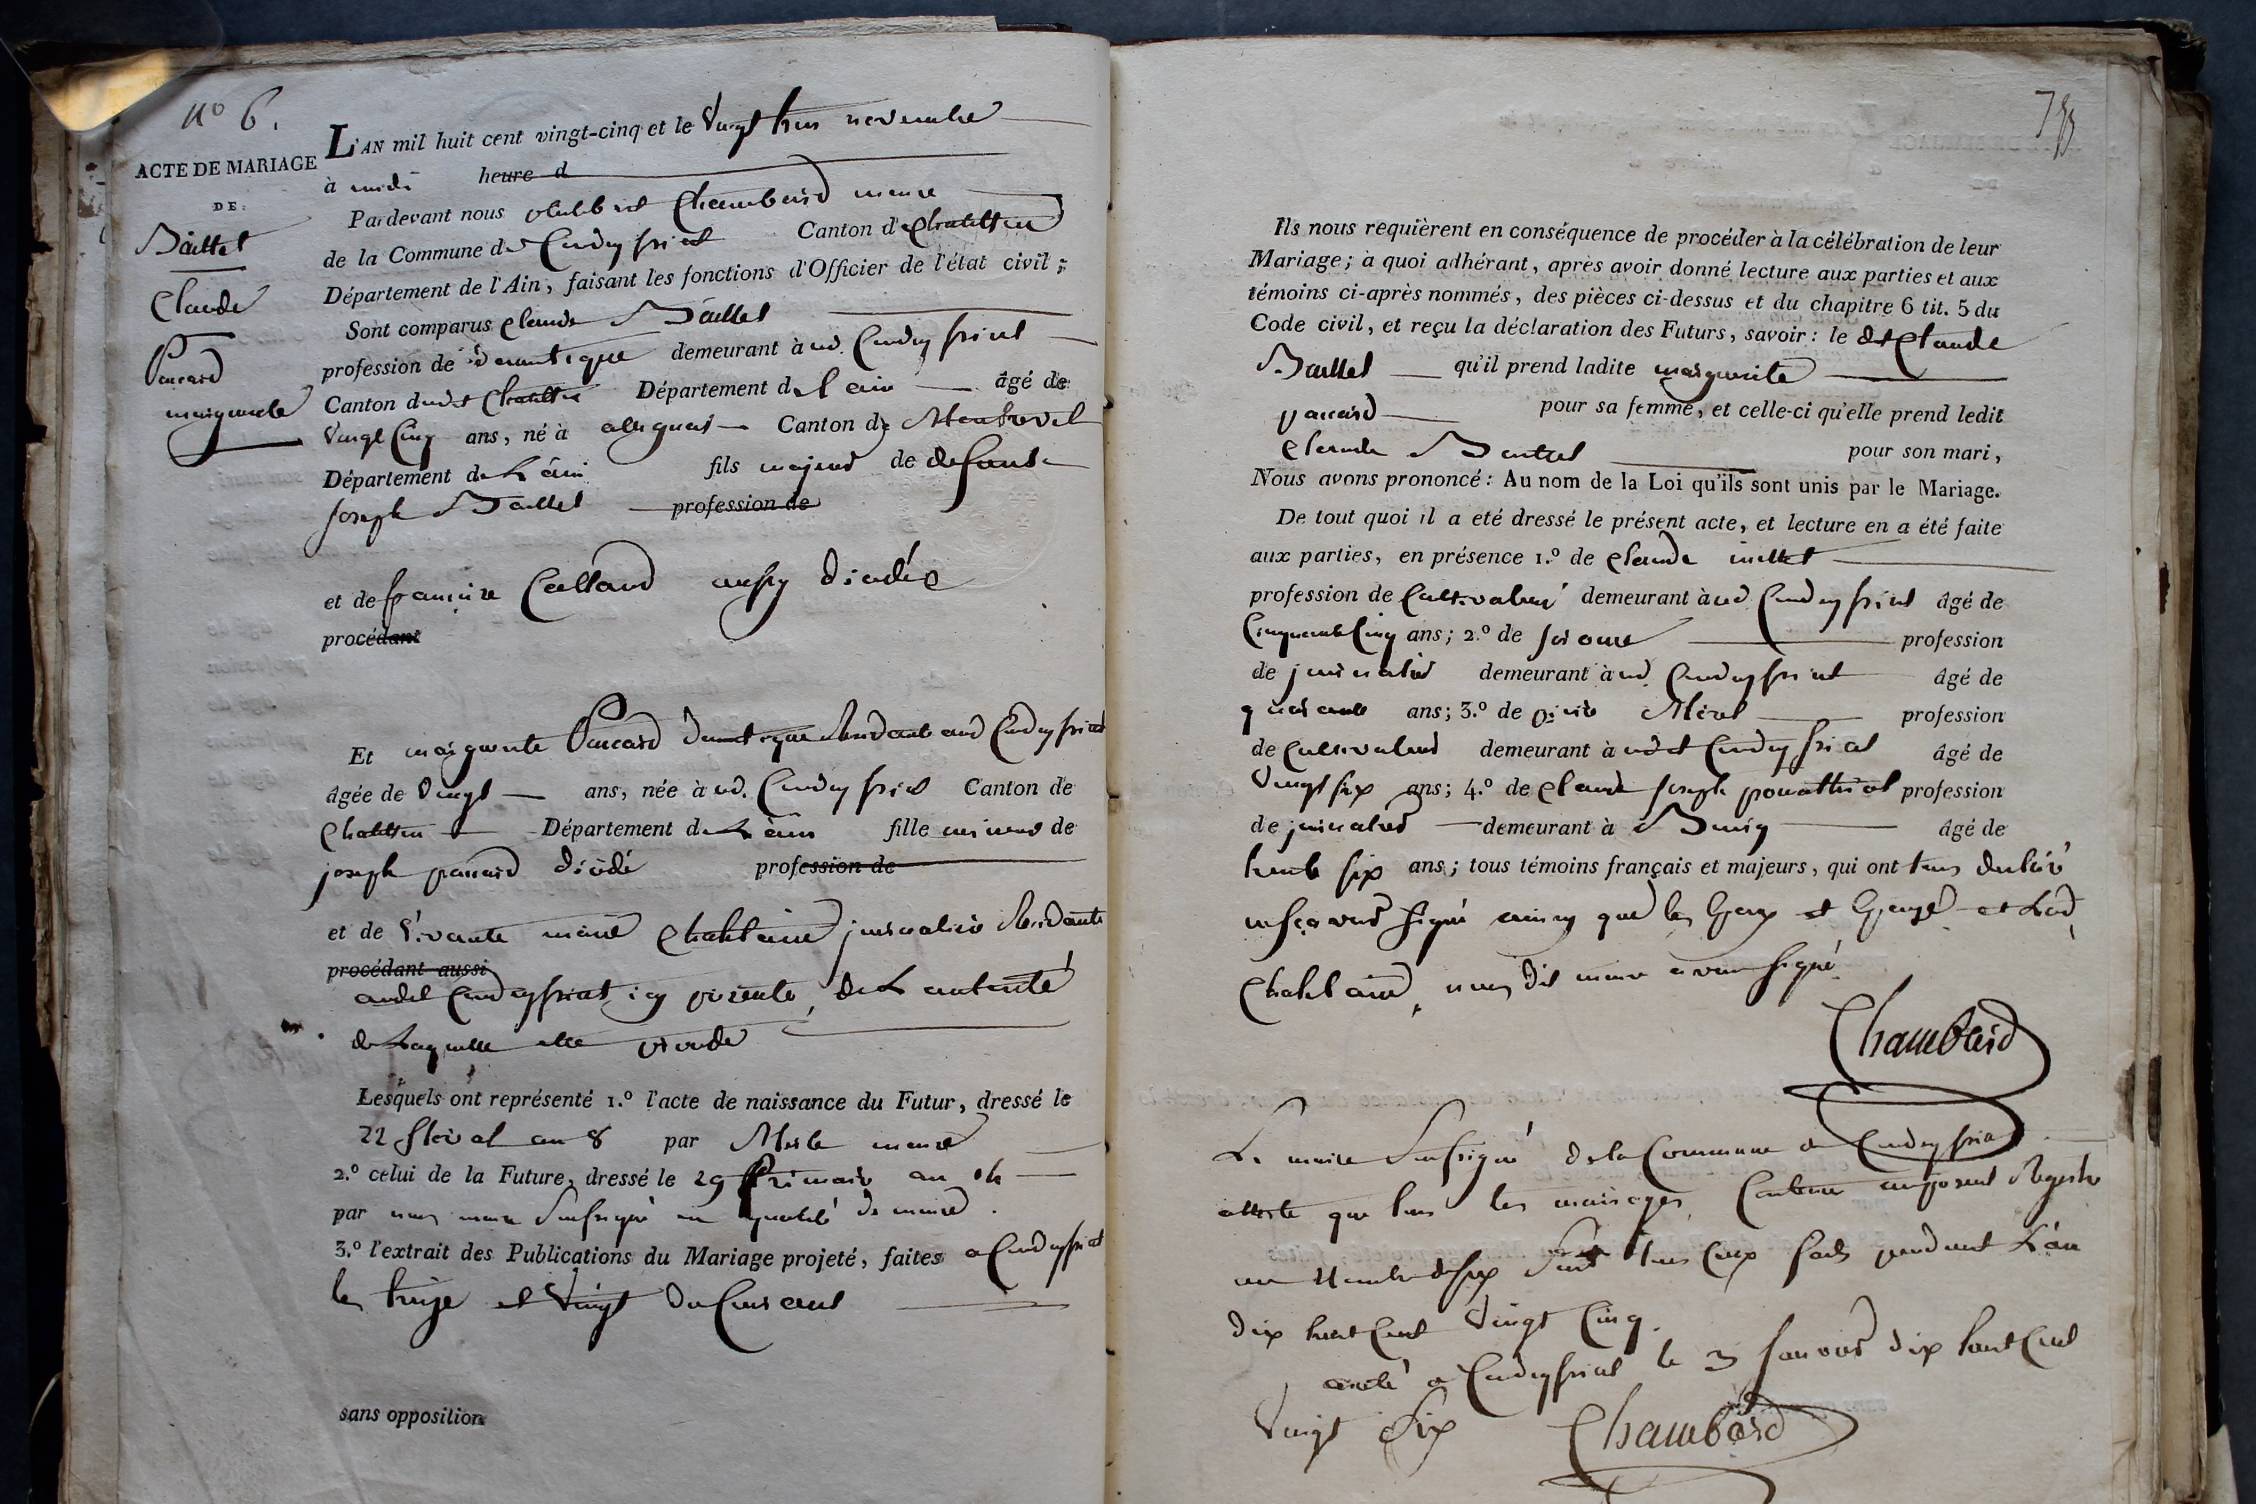 n° 6.
ACTE DE MARIAGE
DE
Baillet
Claude
Paucard
marguerite
L'AN mil huit cent vingt-cinq et le vingt trois novembre
à midi heure d
Pardevant nous Chambard maire
de la Commune de Condeyssiat Canton de Chatillon
Département de l'Ain, faisant les fonctions d'Officier de l'état civil;
Sont comparus Claude Baillet
profession de domestique demeurant à ud. Condeyssiat
Canton dudit Chatillon Département de l'ain âgé de
vingt Cinq ans, né à Canton de Montrevel
Département de L'ain fils majeur de défunt
joseph Baillet profession de
et de francoise Callard aussy décédés
procédant
Et marguerite Paucard domestique Residante aud Condeyssiat
âgée de vingt ans, née à ud. Condeyssiat Canton de
Chatillon Département de L'ain fille mineure de
joseph paucard décédé profession de
et de vivante marie journalière Residante
procédant aussi
audit Condeyssiat, icy présente, de L'autorité
de Laquelle elle procède
Lesquels ont représenté 1.° l'acte de naissance du Futur, dressé le
22 floreal an 8 par Merle maire
2.° celui de la Future, dressé le 29 frimaire an 14
par nous maire Soussigné en qualité de maire.
3.° l'extrait des Publications du Mariage projeté, faites a Condeyssiat
les treize et vingt du Courant
sans opposition
Ils nous requièrent en conséquence de procéder à la célébration de leur
Mariage; à quoi adhérant, après avoir donné lecture aux parties et aux
témoins ci-après nommés, des pièces ci-dessus et du chapitre 6 tit. 5 du
Code civil, et reçu la déclaration des Futurs, savoir: le dit Claude
Baillet qu'il prend ladite marguerite
paucard pour sa femme, et celle-ci qu'elle prend ledit
Claude Baillet pour son mari,
Nous avons prononcé: Au nom de la Loi qu'ils sont unis par le Mariage.
De tout quoi il a eté dressé le présent acte, et lecture en a été faite
aux parties, en présence 1.° de Claude
profession de Cultivateur demeurant à ud. Condeyssiat âgé de
Cinquante Cinq ans; 2.° de profession
de journalier demeurant à ud. Condeyssiat âgé de
quarante ans; 3.° de profession
de Cultivateur demeurant à udit Condeyssiat âgé de
vingt six ans; 4.° de Claude joseph profession
de journalier demeurant à Bourg âgé de
trente six ans; tous témoins français et majeurs, qui ont tous déclaré
ne sçavoir signé ainsy que les Epoux et Lad.
nous dit maire avons signé
Chambard
Le maire Soussigné de la Commune de Condeyssiat
atteste que tous les mariages Contenu au présent Registre
au Nombre de six Sont tous Ceux faits pendant L'an
dix huit Cent vingt Cinq.
arreté a Condeyssiat le 3 janvier dix huit Cent
vingt Six Chambard